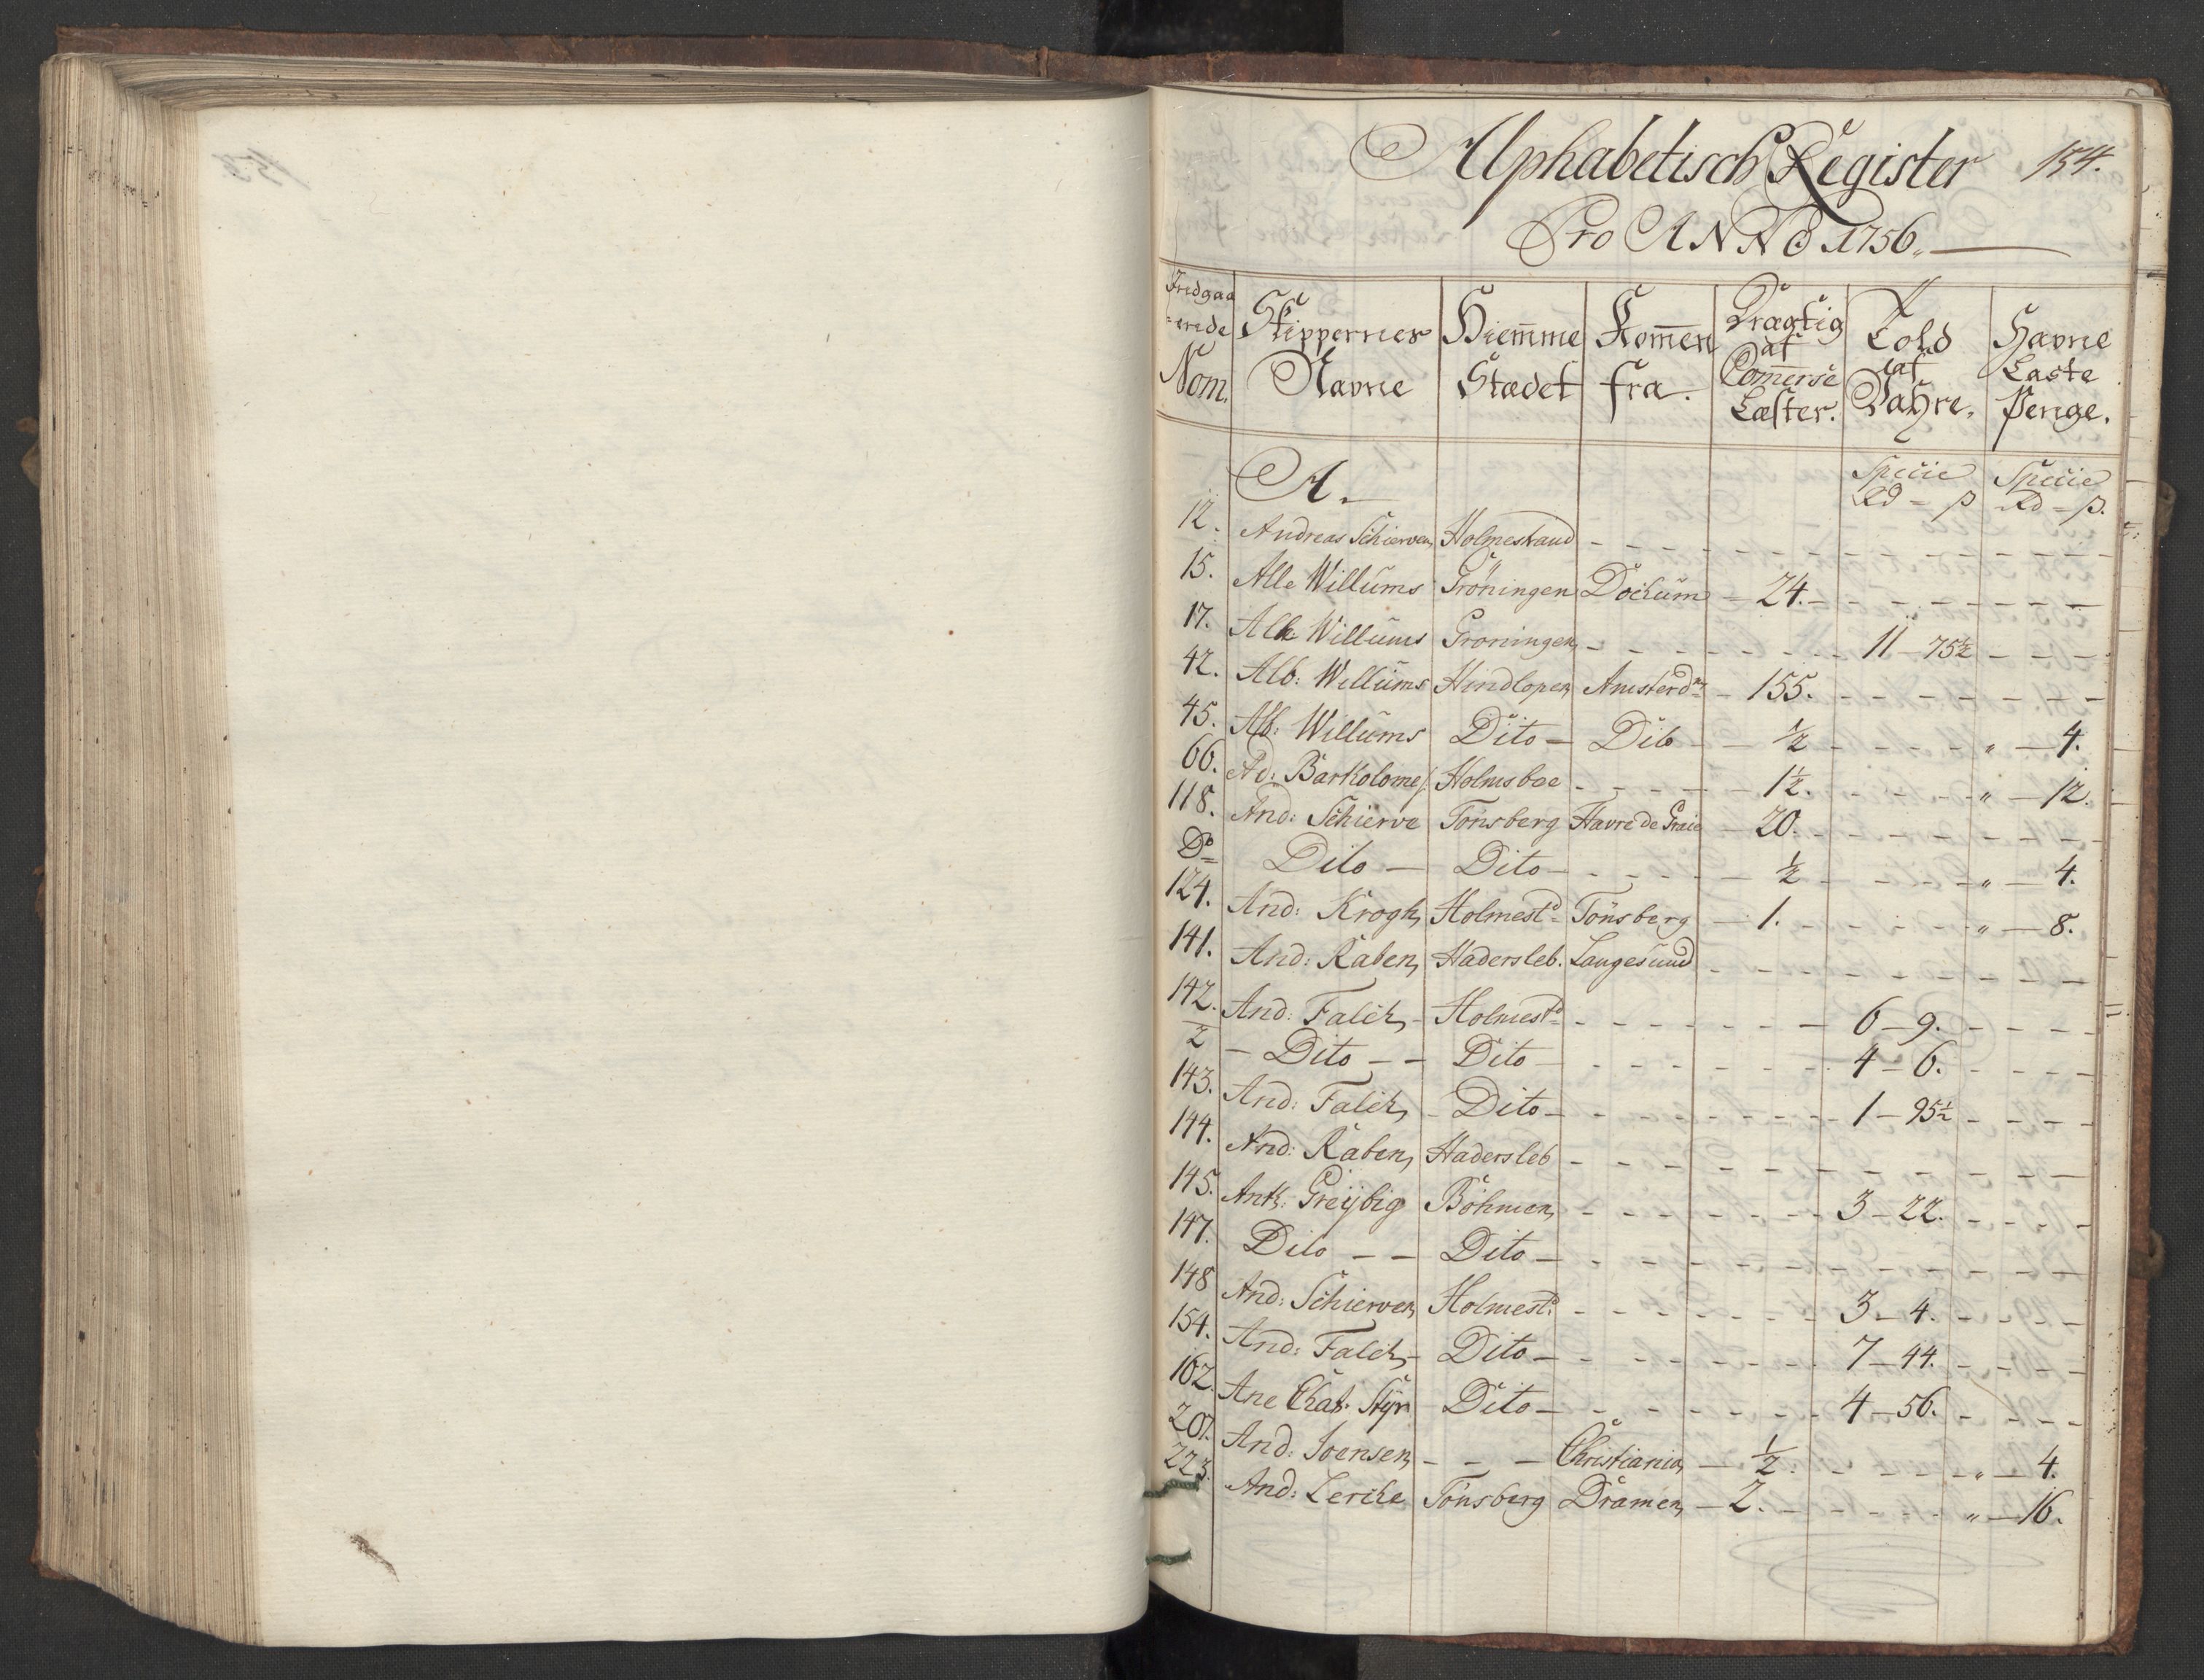 Alphabetisch Register 154.
Pro ANNO 1756.
Indgaa=erede Nom. Skippernes Navne Hiemme Stædet Kommen fra. Drægtig af Commerse Læster. Told af Vahre. Havne Laste Penge.
A. Specie Rd - ß Specie Rd - ß.
12. Andreas Schierven Holmestrand
15. Alle Willums Gröningen Dockum 24.
17. Alle Willums Groningen 11 - 75½
42. Alb: Willums Hindlopen Amsterdm 155.
45. Alb: Willums Dito Dito ½ " 4.
66. Ad: Barkolome/: Holmsboe 1½. " 12.
118. And: Schierve Tönsberg Havre de Graie 20.
Do Dito Dito ½ " 4.
124. And: Krogh Holmestd Tönsberg 1. " 8.
141. And: Raben Hadersleb. Langesund
142. And: Falck Holmestd 6 - 9.
2 Dito Dito 4 - 6.
143. And: Falck Dito 1 - 95½
144. And: Raben Hadersleb
145. Anth: Greÿbig Böhmen 3 - 22.
147. Dito Dito
148 And: Schierven Holmestd. 3 - 4.
154. And: Falck Dito 7 - 44.
162. Ane Chat: Stÿr Dito 4 - 56.
201. And: Joensen Christiania ½. " 4.
223. And: Lercke Tönsberg Dramen 2. " 16.